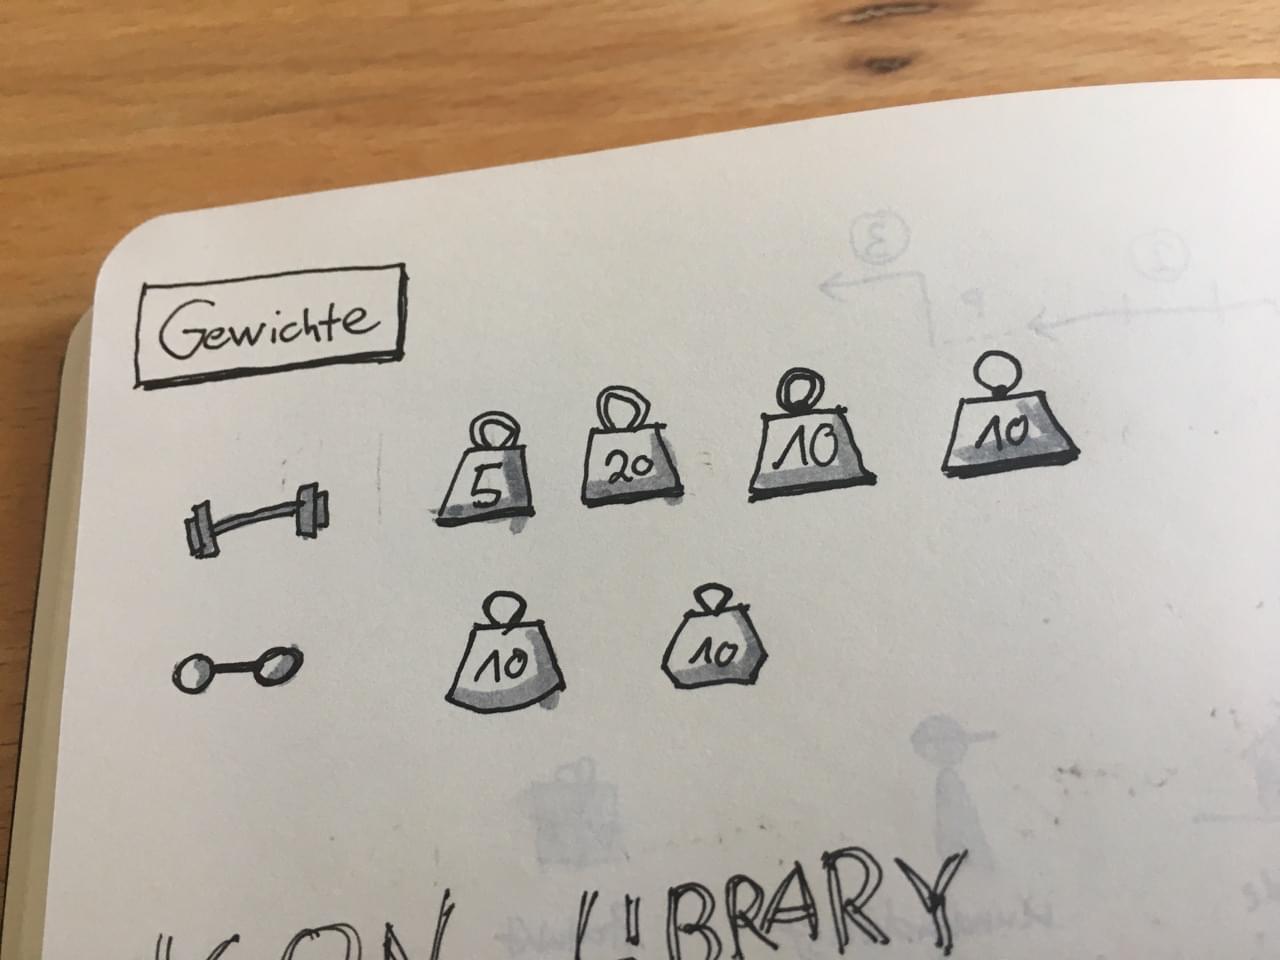 Gewichte
5 20 10 10
10 10
ICON LIBRARY